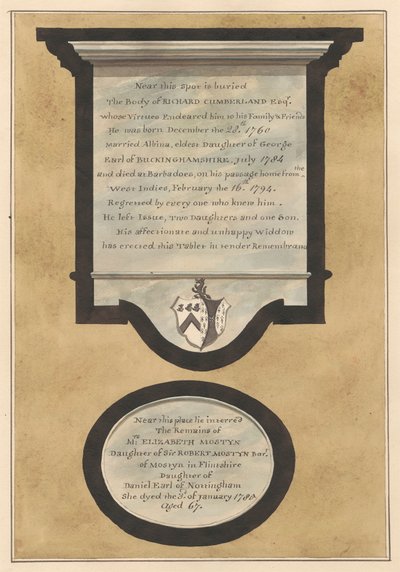 Near this spot is buried
The Body of RICHARD CUMBERLAND Esqr.
whose Virtues Endeared him to his Family & Friends
He was born December the 28th 1760
married Albina, eldest Daughter of George
Earl of BUCKINGHAMSHIRE, July 1784
and died at Barbadoes, on his passage home from the
West Indies, February the 16th 1794.
Regretted by every one who knew him.
He left Issue, Two Daughters and one Son.
His affectionate and unhappy Widdow
has erected this Tablet in tender Remembrance
Near this place lie interred
The Remains of
Mrs ELIZABETH MOSTYN
Daughter of Sir ROBERT MOSTYN Bart.
of Mostyn in Flintshire
Daughter of
Daniel Earl of Nottingham
She dyed the of January
Aged 67.